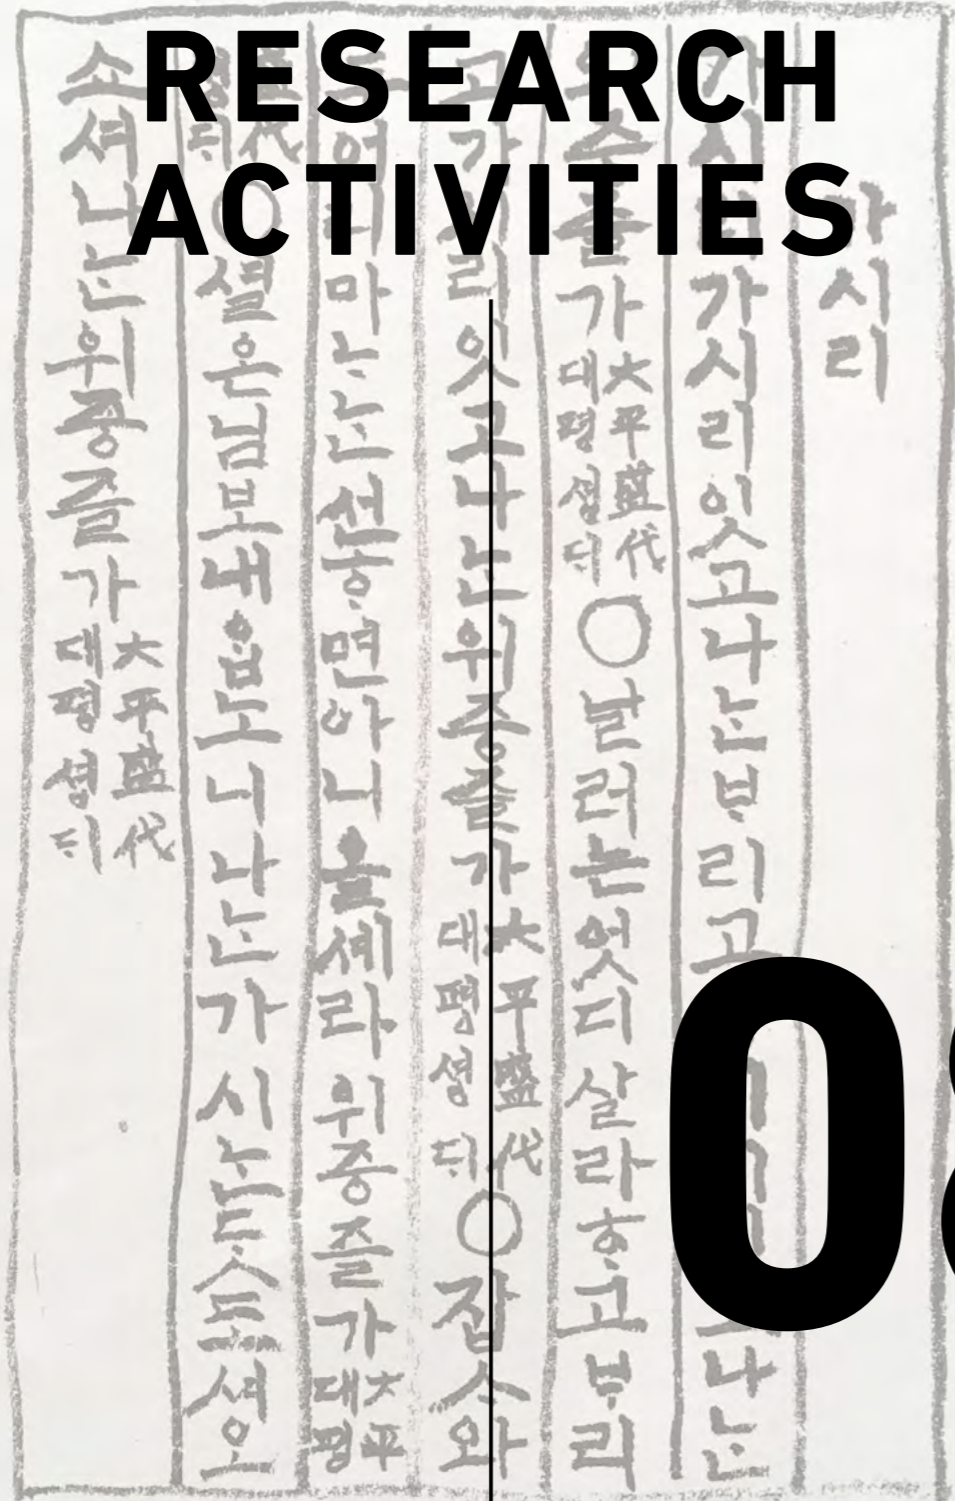 RESEARCH
ACTIVITIES
0
가시리
가시리가시리잇고나ᄂᆞᆫᄇᆞ리고 나ᄂᆞᆫ
위증즐가大平盛代대평셩ᄃᆡ○날러는엇디살라ᄒᆞ고ᄇᆞ리
고가시리잇고나ᄂᆞᆫ위증즐가大平盛代대평셩ᄃᆡ○잡ᄉᆞ와
두어리마ᄂᆞᄂᆞᆫ선ᄒᆞ면아니올셰라위증즐가大平대평
盛代셩ᄃᆡ○셜온님보내ᄋᆞᆸ노니나ᄂᆞᆫ가시ᄂᆞᆫᄃᆞᆺ도셔오
쇼셔나ᄂᆞᆫ위증즐가大平盛代대평셩ᄃᆡ